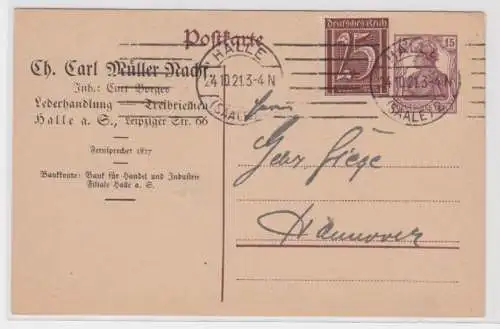 Postkarte
Deutsches Reich
25
15
HALLE
24.10.21.3-4 N
(SAALE)
HALLE
24.10.21.3-4 N
(SAALE)
Ch. Carl Müller Nachf
Inh.: Curt Borges
Lederhandlung — Treibriemen
Halle a. S., Leipziger Str. 66
Fernsprecher 1827
Bankkonto: Bank für Handel und Industrie
Filiale Halle a. S.
Hannover